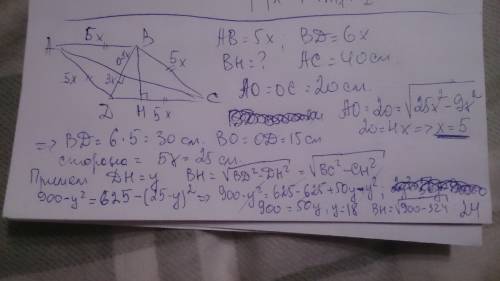 A 5x B
5x O 3x 5x
D H 5x C
AB = 5x, BD = 6x
BH = ? AC = 40 см.
AO = OC = 20 см.
AO = 20 = √25x² - 9x²
20 = 4x => x = 5
=> BD = 6 · 5 = 30 см. BO = OD = 15 см
сторона = 5x = 25 см.
DH = y BH = √BD² - DH² = √BC² - CH²
900 - y² = 625 - (25 - y)² => 900 - y² = 625 - 625 + 50y - y² ;
900 = 50y, y = 18 BH = √900 - 324 24